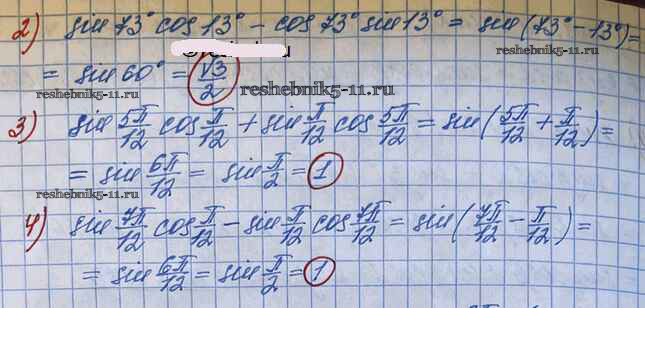 2) sin 73° cos 13° - cos 73° sin 13° = sin (73° - 13°) =
reshebnik5-11.ru
= sin 60° = √3/2
reshebnik5-11.ru
reshebnik5-11.ru
3) sin 5π/12 cos π/12 + sin π/12 cos 5π/12 = sin (5π/12 + π/12) =
= sin 6π/12 = sin π/2 = 1
reshebnik5-11.ru
4) sin 7π/12 cos π/12 - sin π/12 cos 7π/12 = sin (7π/12 - π/12) =
= sin 6π/12 = sin π/2 = 1